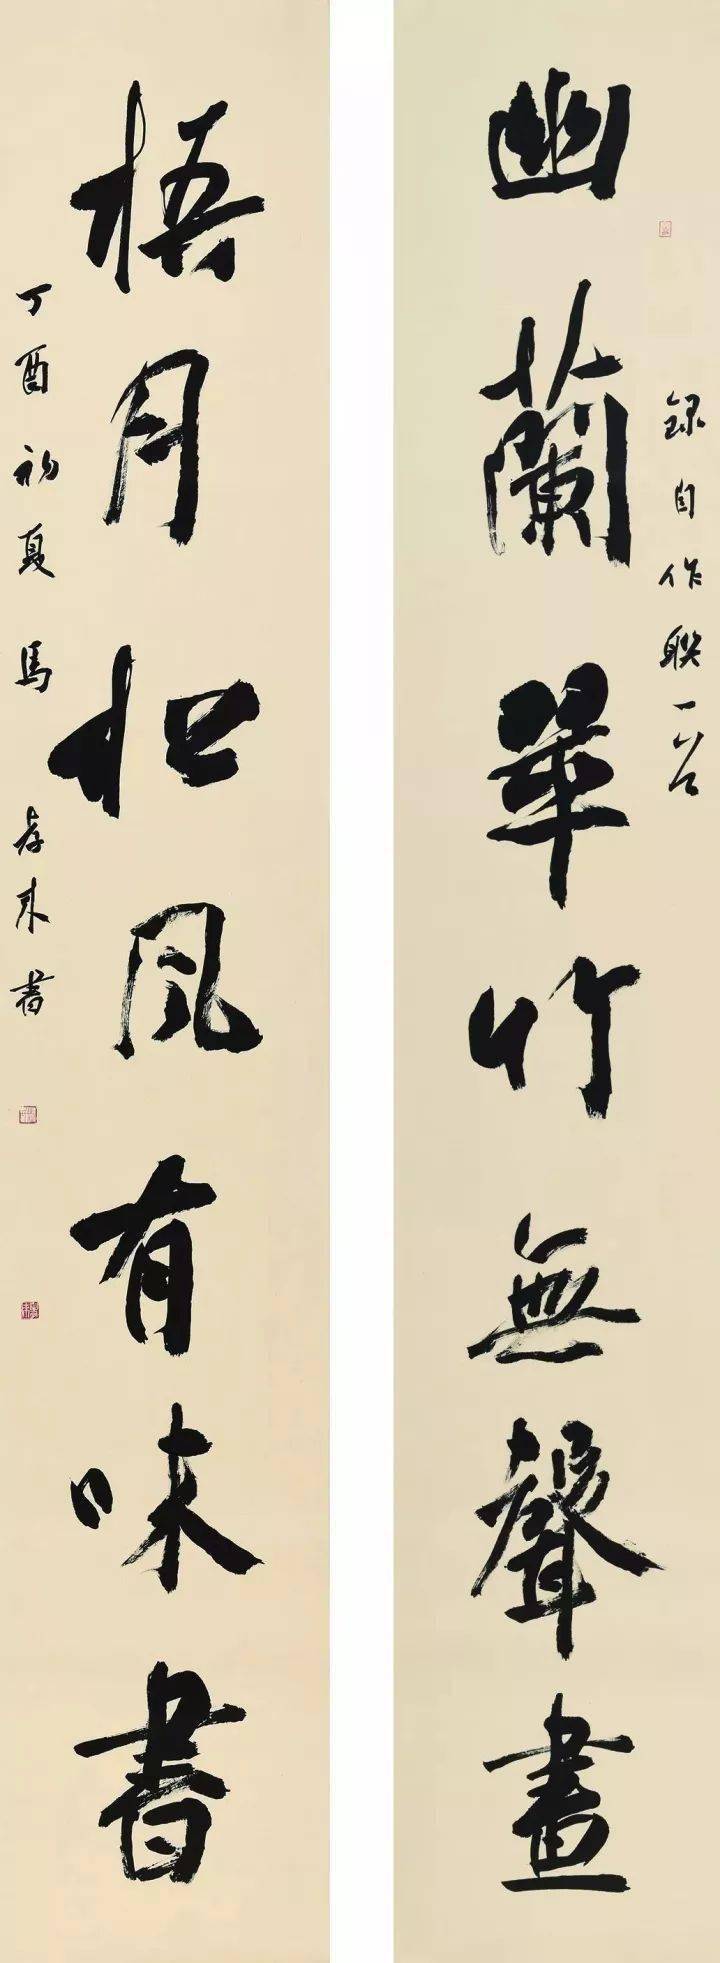 録自作聯一
幽蘭翠竹無聲畫
梧月松風有味書
丁酉初夏馬孝来書